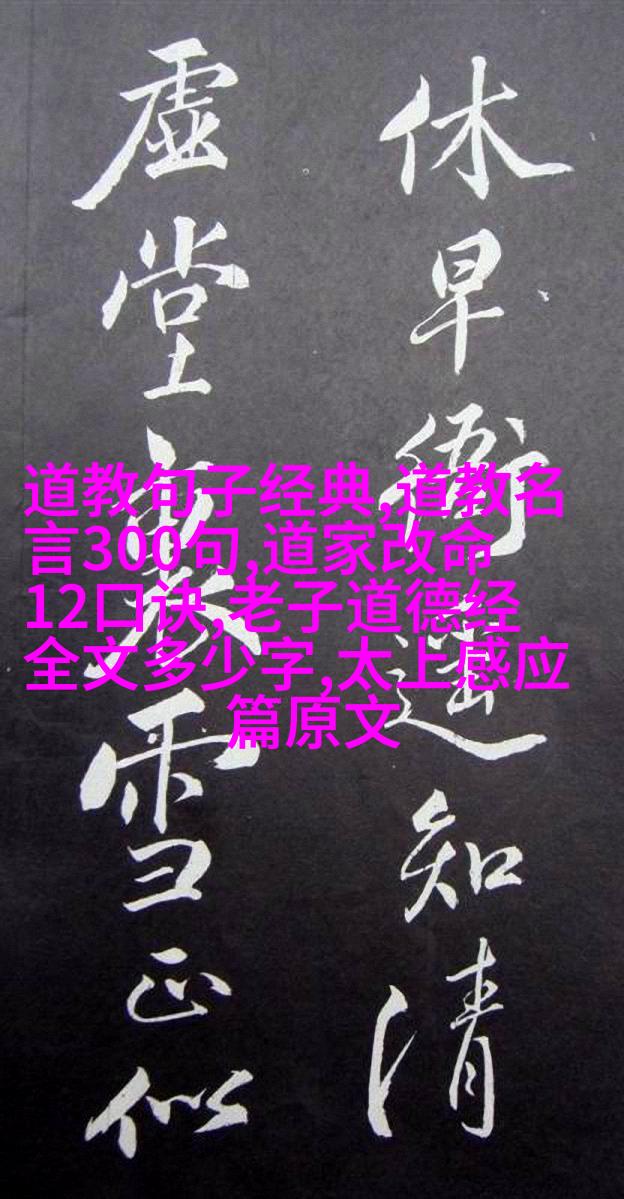 休早衙遥知清
虚堂雪正似
道教句子经典,道教名
言300句,道家改命
12口诀,老子道德经
全文多少字,太上感应
篇原文